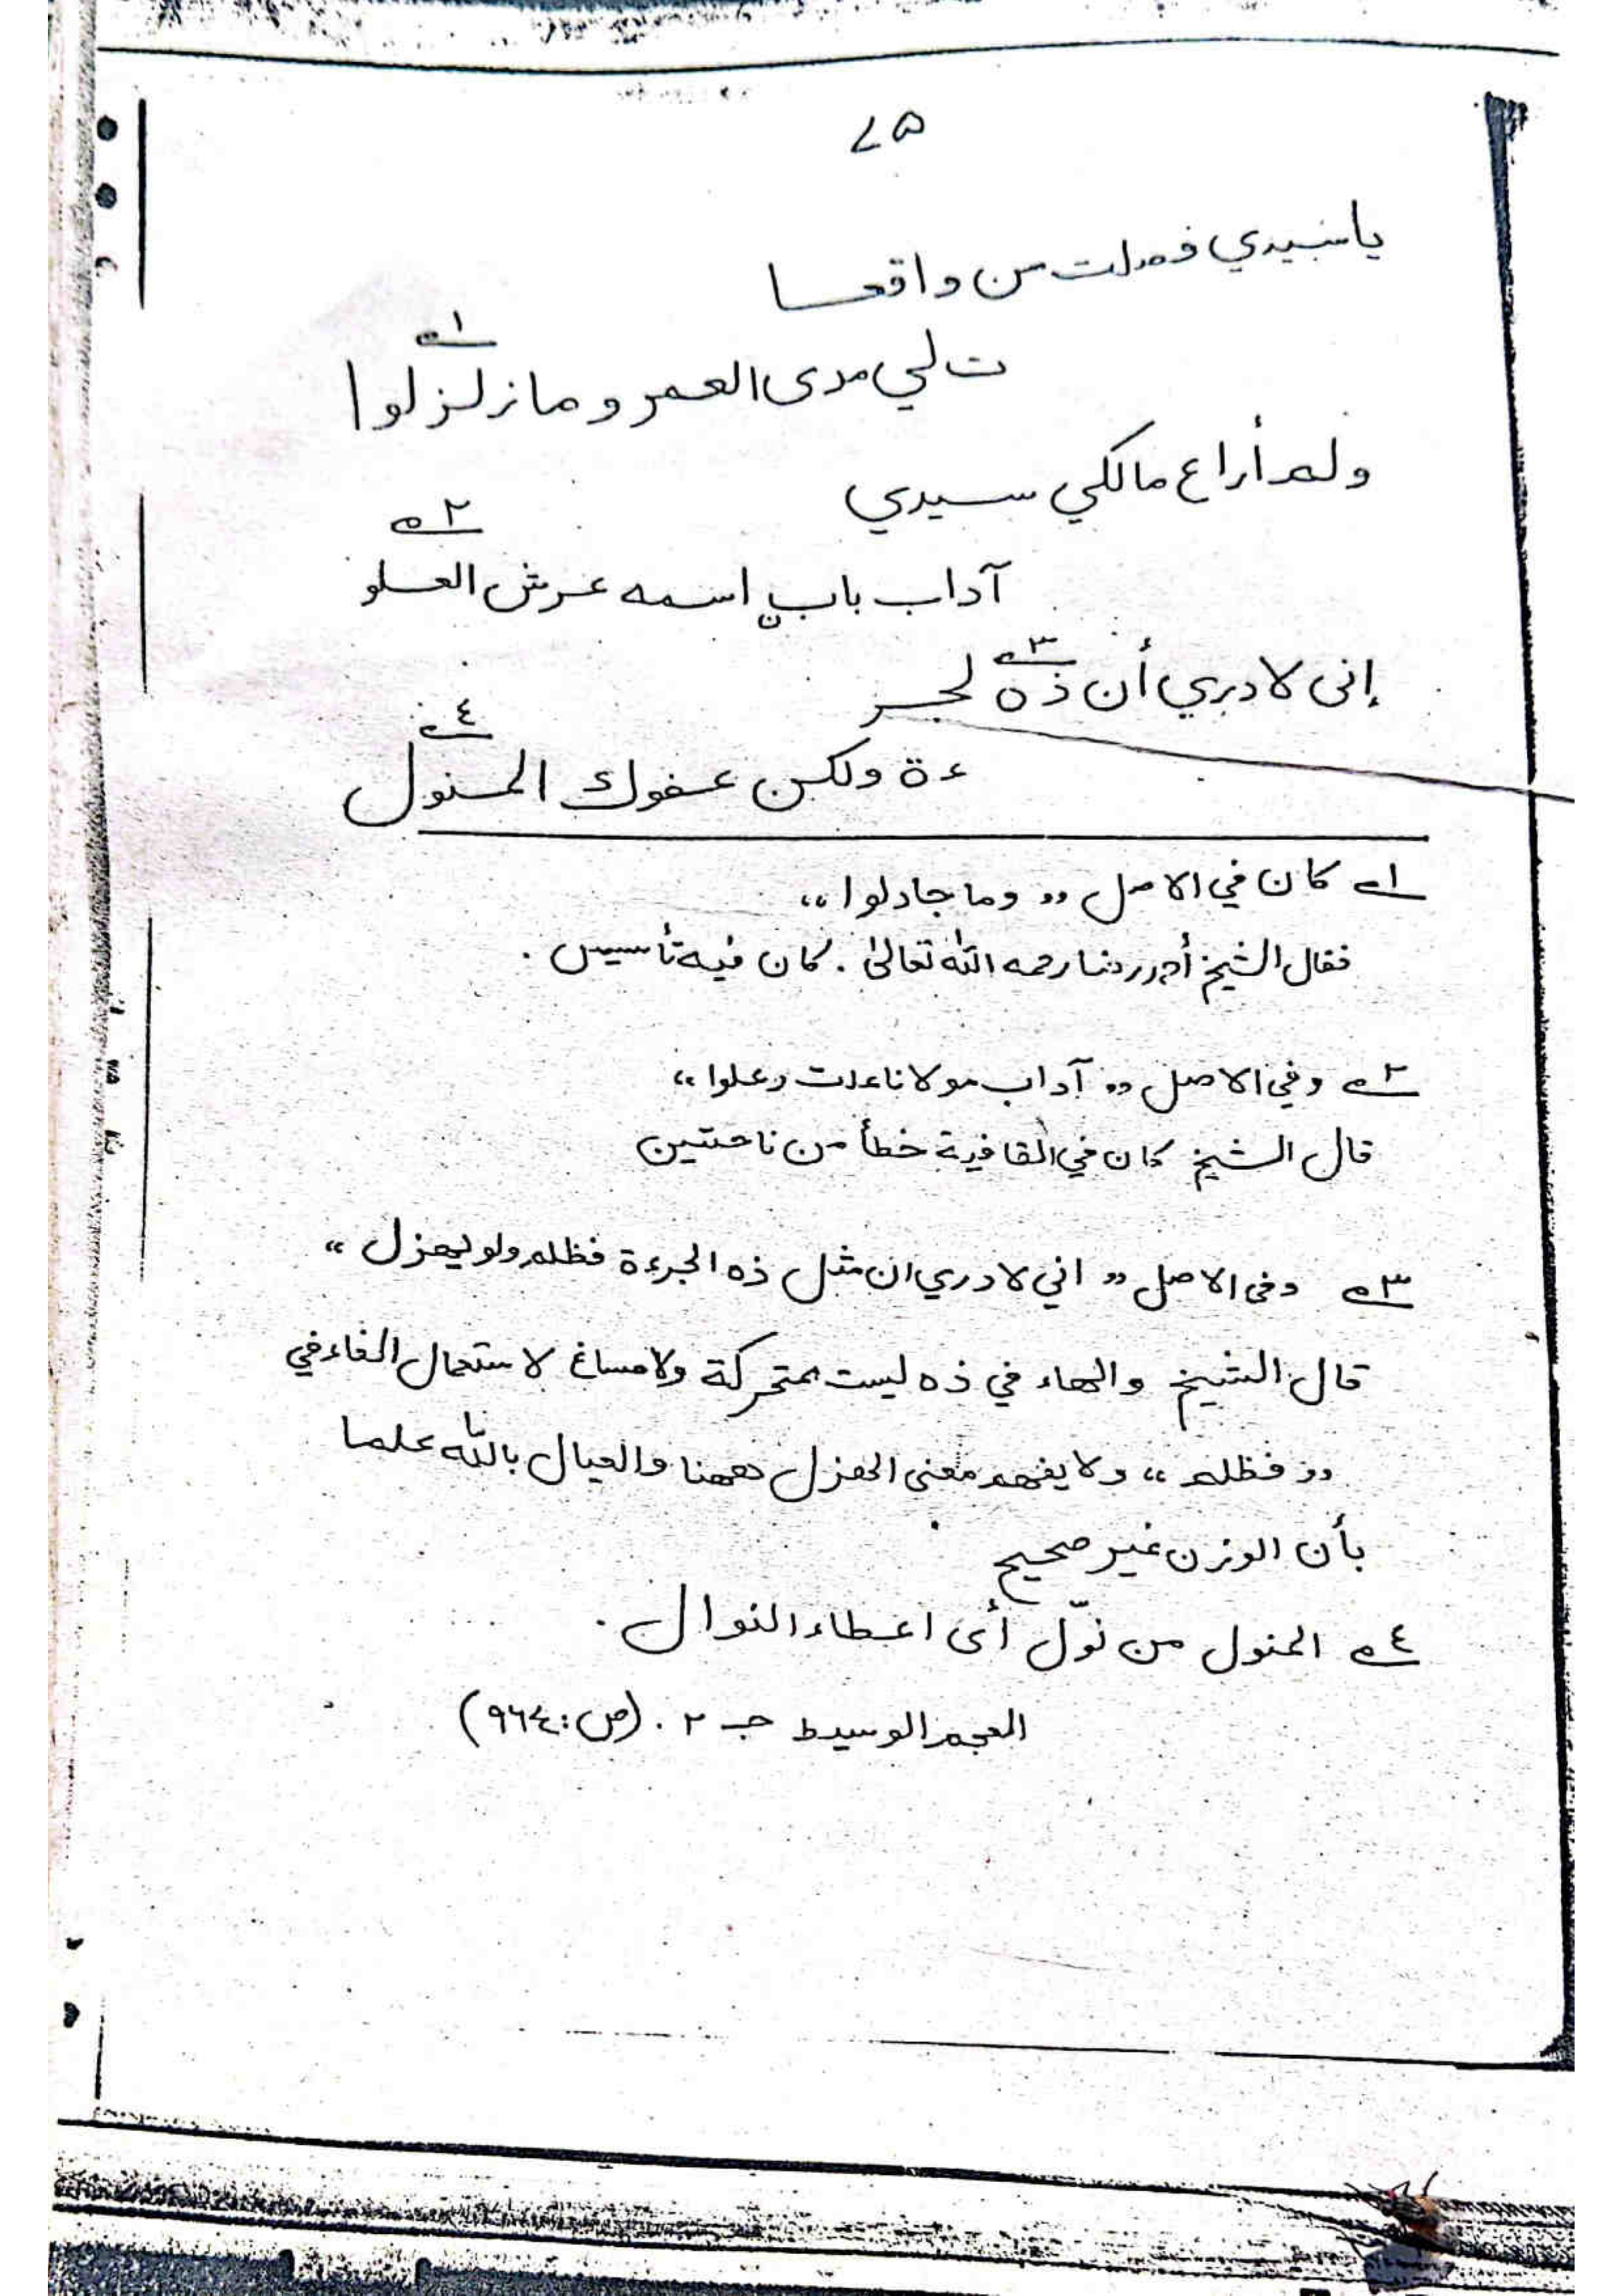 ٧۵
يا سيدي فصلت من واقعا
١
ت لي مدى العمر وما زلزلوا
ولم أراع مالكي سيدي
٢
آداب باب اسمه عرش العلو
إنى لادري أن ذه لجر
٣
٤
ءة ولكن عفوك المنول
١ كان في الاصل ,, وما جادلوا ،،
فقال الشيخ رحمه الله تعالى . كان فيه تأسيس .
٢ وفي الاصل ,, آداب مولانا علت وعلوا ،،
قال الشيخ كان في القافية خطأ من ناحتين
٣ وفى الاصل ,, اني لادري ان مثل ذه الجرءة فظلم ولو يهزل ،،
قال الشيخ والهاء في ذه ليست بمتحركة ولا مساغ لاستعمال الفاء في
,, فظلم ،، ولا يفهم معنى الهزل ههنا والعيال بالله علما
بأن الوزن غير صحيح
٤ المنول من نوّل أى اعطاء النوال .
المعجم الوسيط جـ ٢ . (ص : ٩٦٤)